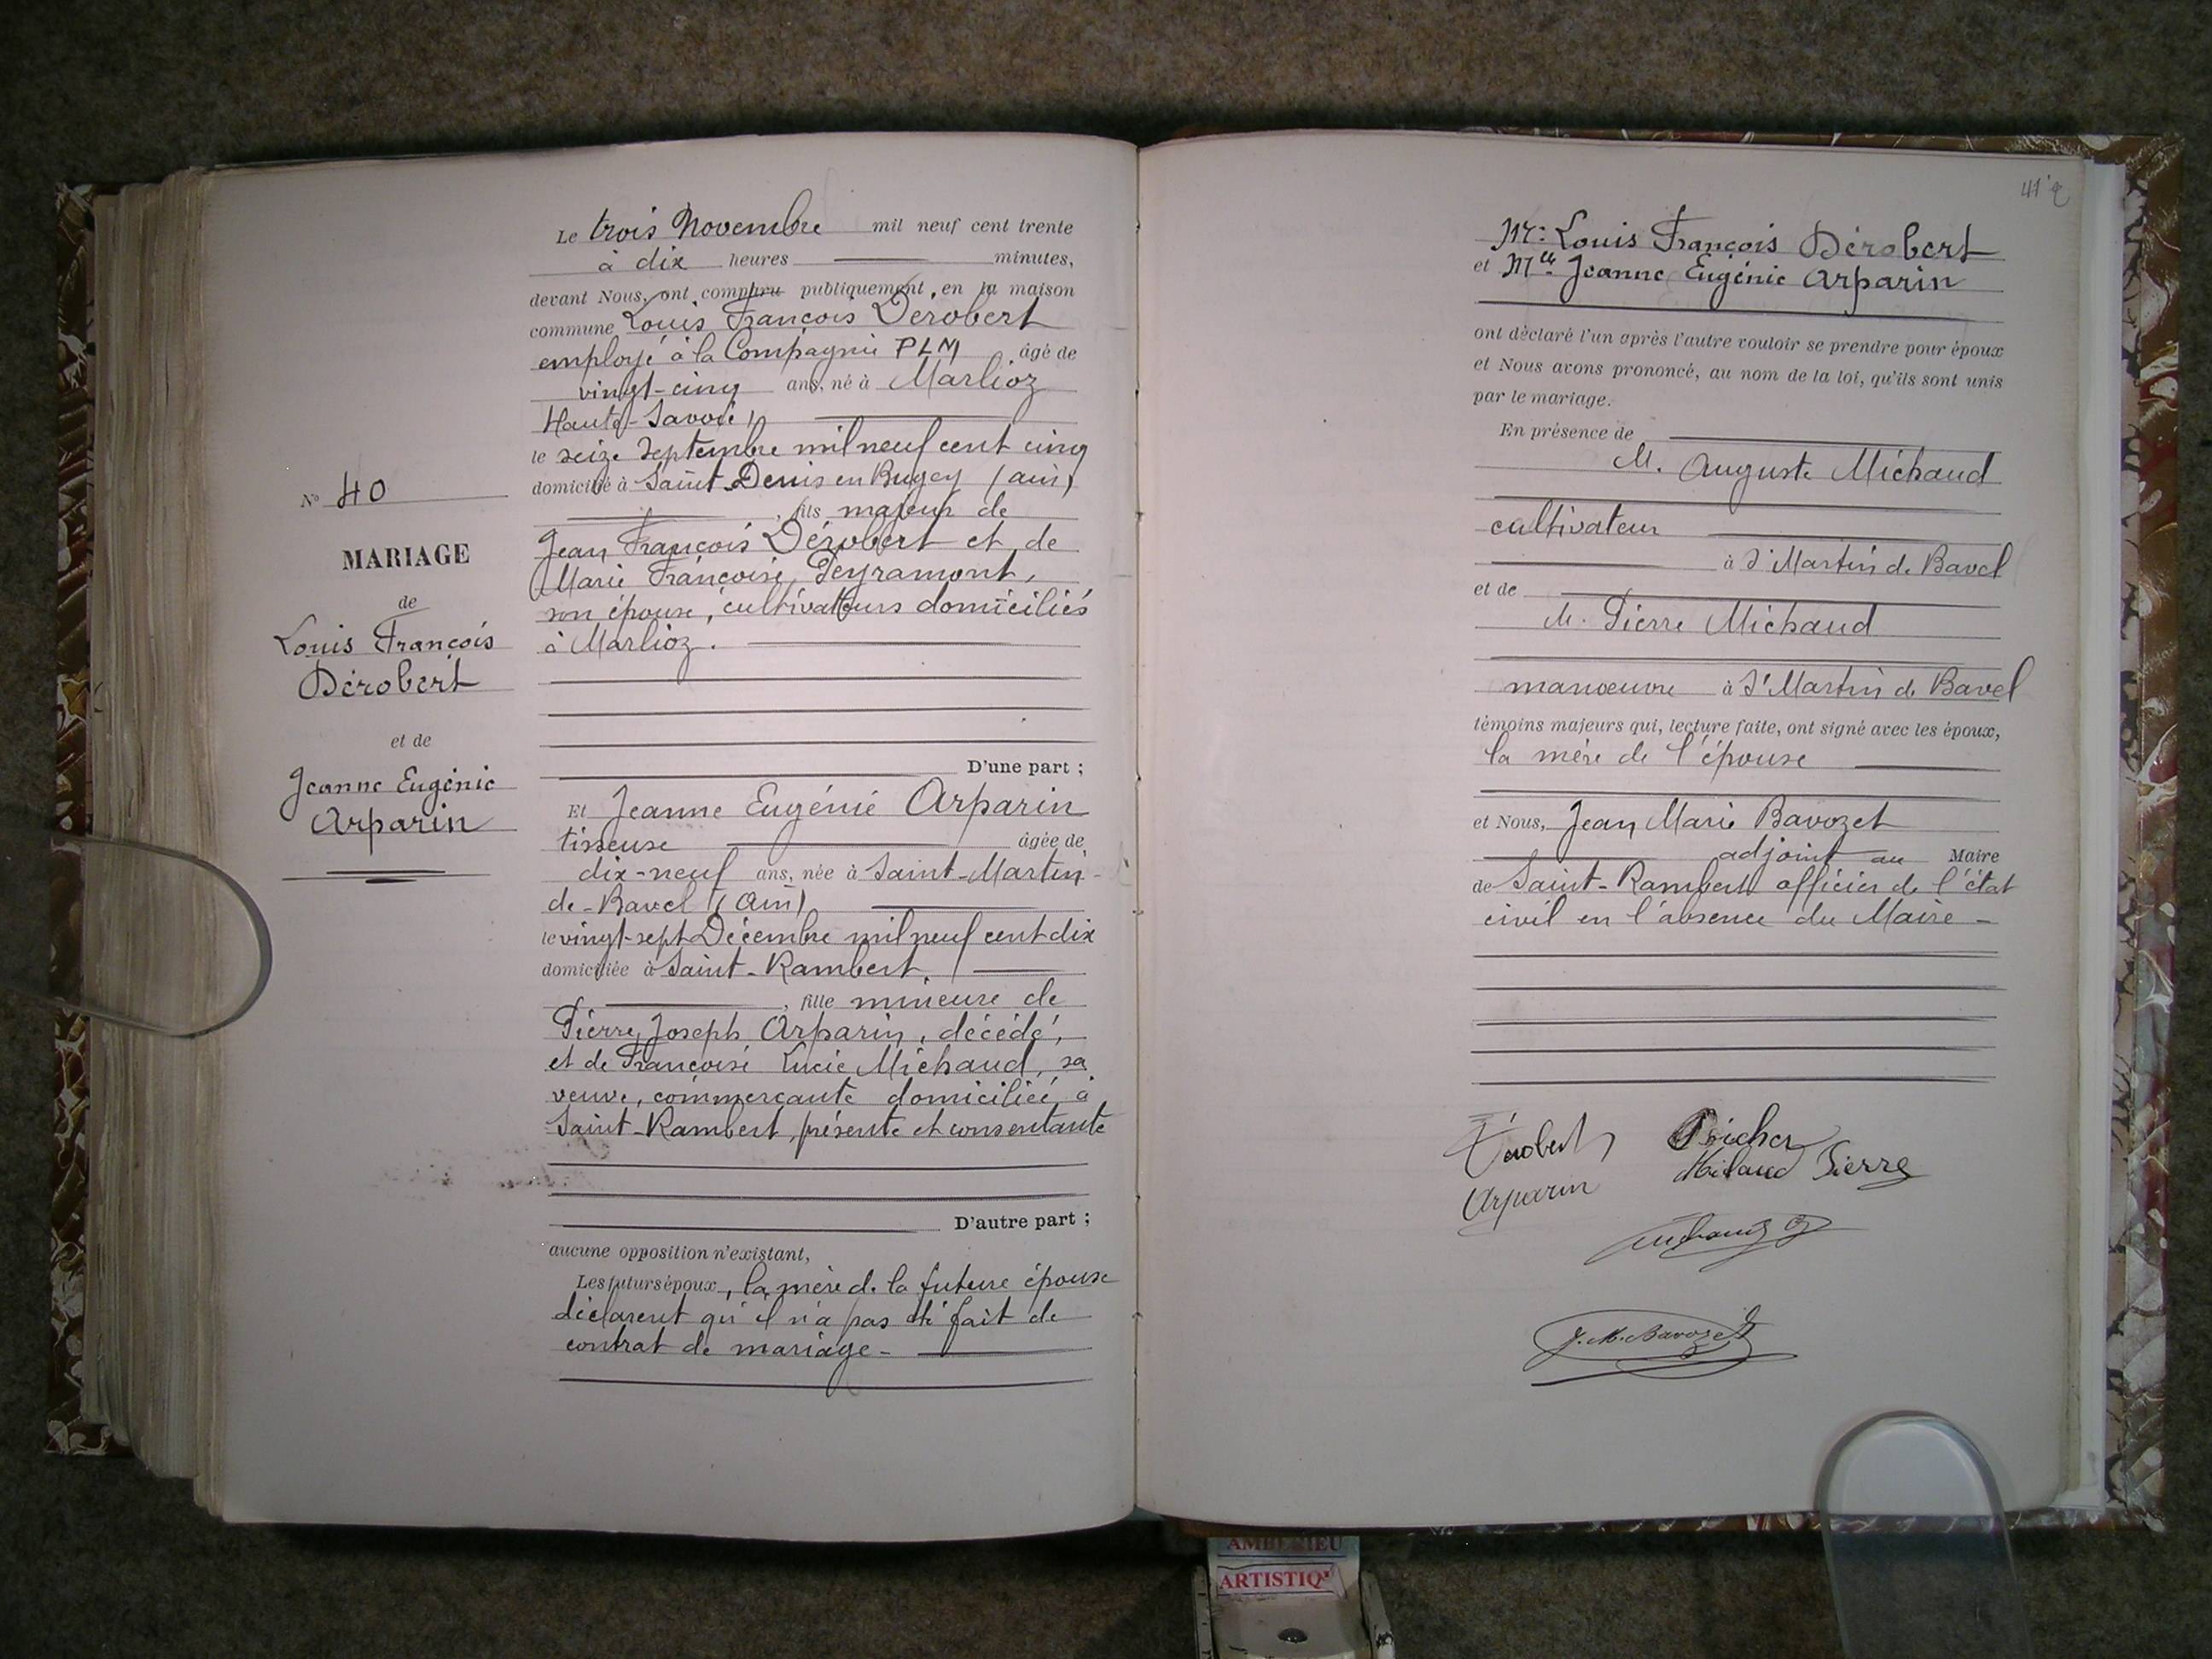 N° 40
MARIAGE
de
Louis François
Dérobert
et de
Jeanne Eugénie
Arparin
Le trois Novembre mil neuf cent trente
à dix heures minutes,
devant Nous, ont comparu publiquement, en la maison
commune Louis François Dérobert
employé à la Compagnie PLM, âgé de
vingt-cinq ans, né à Marlioz
Haute-Savoie)
le seize Septembre mil neuf cent cinq
domicilié à Saint Denis en Bugey (ain)
, fils majeur de
Jean François Dérobert et de
Marie Françoise Peyramont,
son épouse, cultivateurs domiciliés
à Marlioz.
D'une part ;
Et Jeanne Eugénie Arparin
tisseuse âgée de
dix-neuf ans, née à Saint-Martin-
de-Bavel (Ain)
le vingt-sept Décembre mil neuf cent dix
domiciliée à Saint-Rambert,
, fille mineure de
Pierre Joseph Arparin, décédé,
et de Françoise Lucie Michaud, sa
veuve, commerçante domiciliée à
Saint-Rambert, présente et consentante
D'autre part ;
aucune opposition n'existant,
Les futurs époux, la mère de la future épouse
déclarent qu'il n'a pas été fait de
contrat de mariage -
Mr. Louis François Dérobert
et Mlle Jeanne Eugénie Arparin
ont déclaré l'un après l'autre vouloir se prendre pour époux
et Nous avons prononcé, au nom de la loi, qu'ils sont unis
par le mariage.
En présence de
M. Auguste Michaud
cultivateur
à St Martin de Bavel
et de
M. Pierre Michaud
manoeuvre à St Martin de Bavel
témoins majeurs qui, lecture faite, ont signé avec les époux,
la mère de l'épouse
et Nous, Jean Marie Bavozet
adjoint au Maire
de Saint-Rambert officier de l'état
civil en l'absence du Maire -
Dérobert
Arparin
Pierre
J. M. Bavozet
AMBERIEU
ARTISTIQ